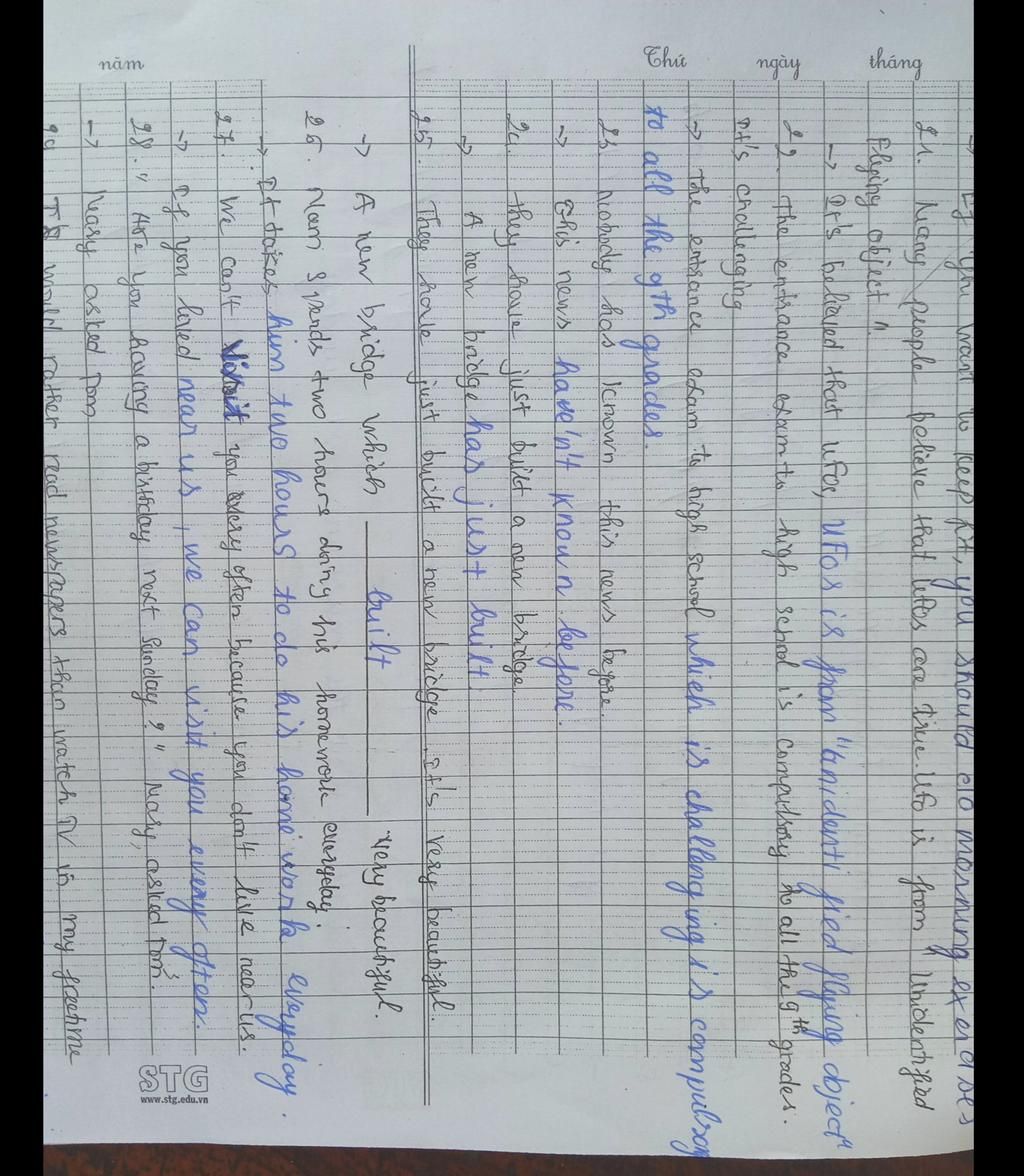 Thứ ngày tháng năm
want to keep fit, you should do morning exercises
21. Many people believe that ufos are true. Ufo is from "Unidentified
Flying object".
→ It's believed that ufos, UFOs is from "Unidentified flying object"
22. The entrance exam to high school is compulsory to all the 9th grades.
It's challenging
→ The entrance exam to high school which is challenging is compulsory
to all the 9th grades.
23. Nobody has known this news before.
→ This news haven't known before.
24. they have just built a new bridge.
→ A new bridge has just built.
25. They have just built a new bridge. It's very beautiful.
→ A new bridge which built very beautiful.
26. Nam spends two hours doing his homework everyday.
→ It takes him two hours to do his home work everyday.
27. We can't visit you very often because you don't live near us.
→ If you lived near us, we can visit you every often.
28. " Are you having a birthday next Sunday?" Mary asked Tom.
→ Mary asked Tom
29 would rather read newspapers than watch TV in my freetime
STG
www.stg.edu.vn